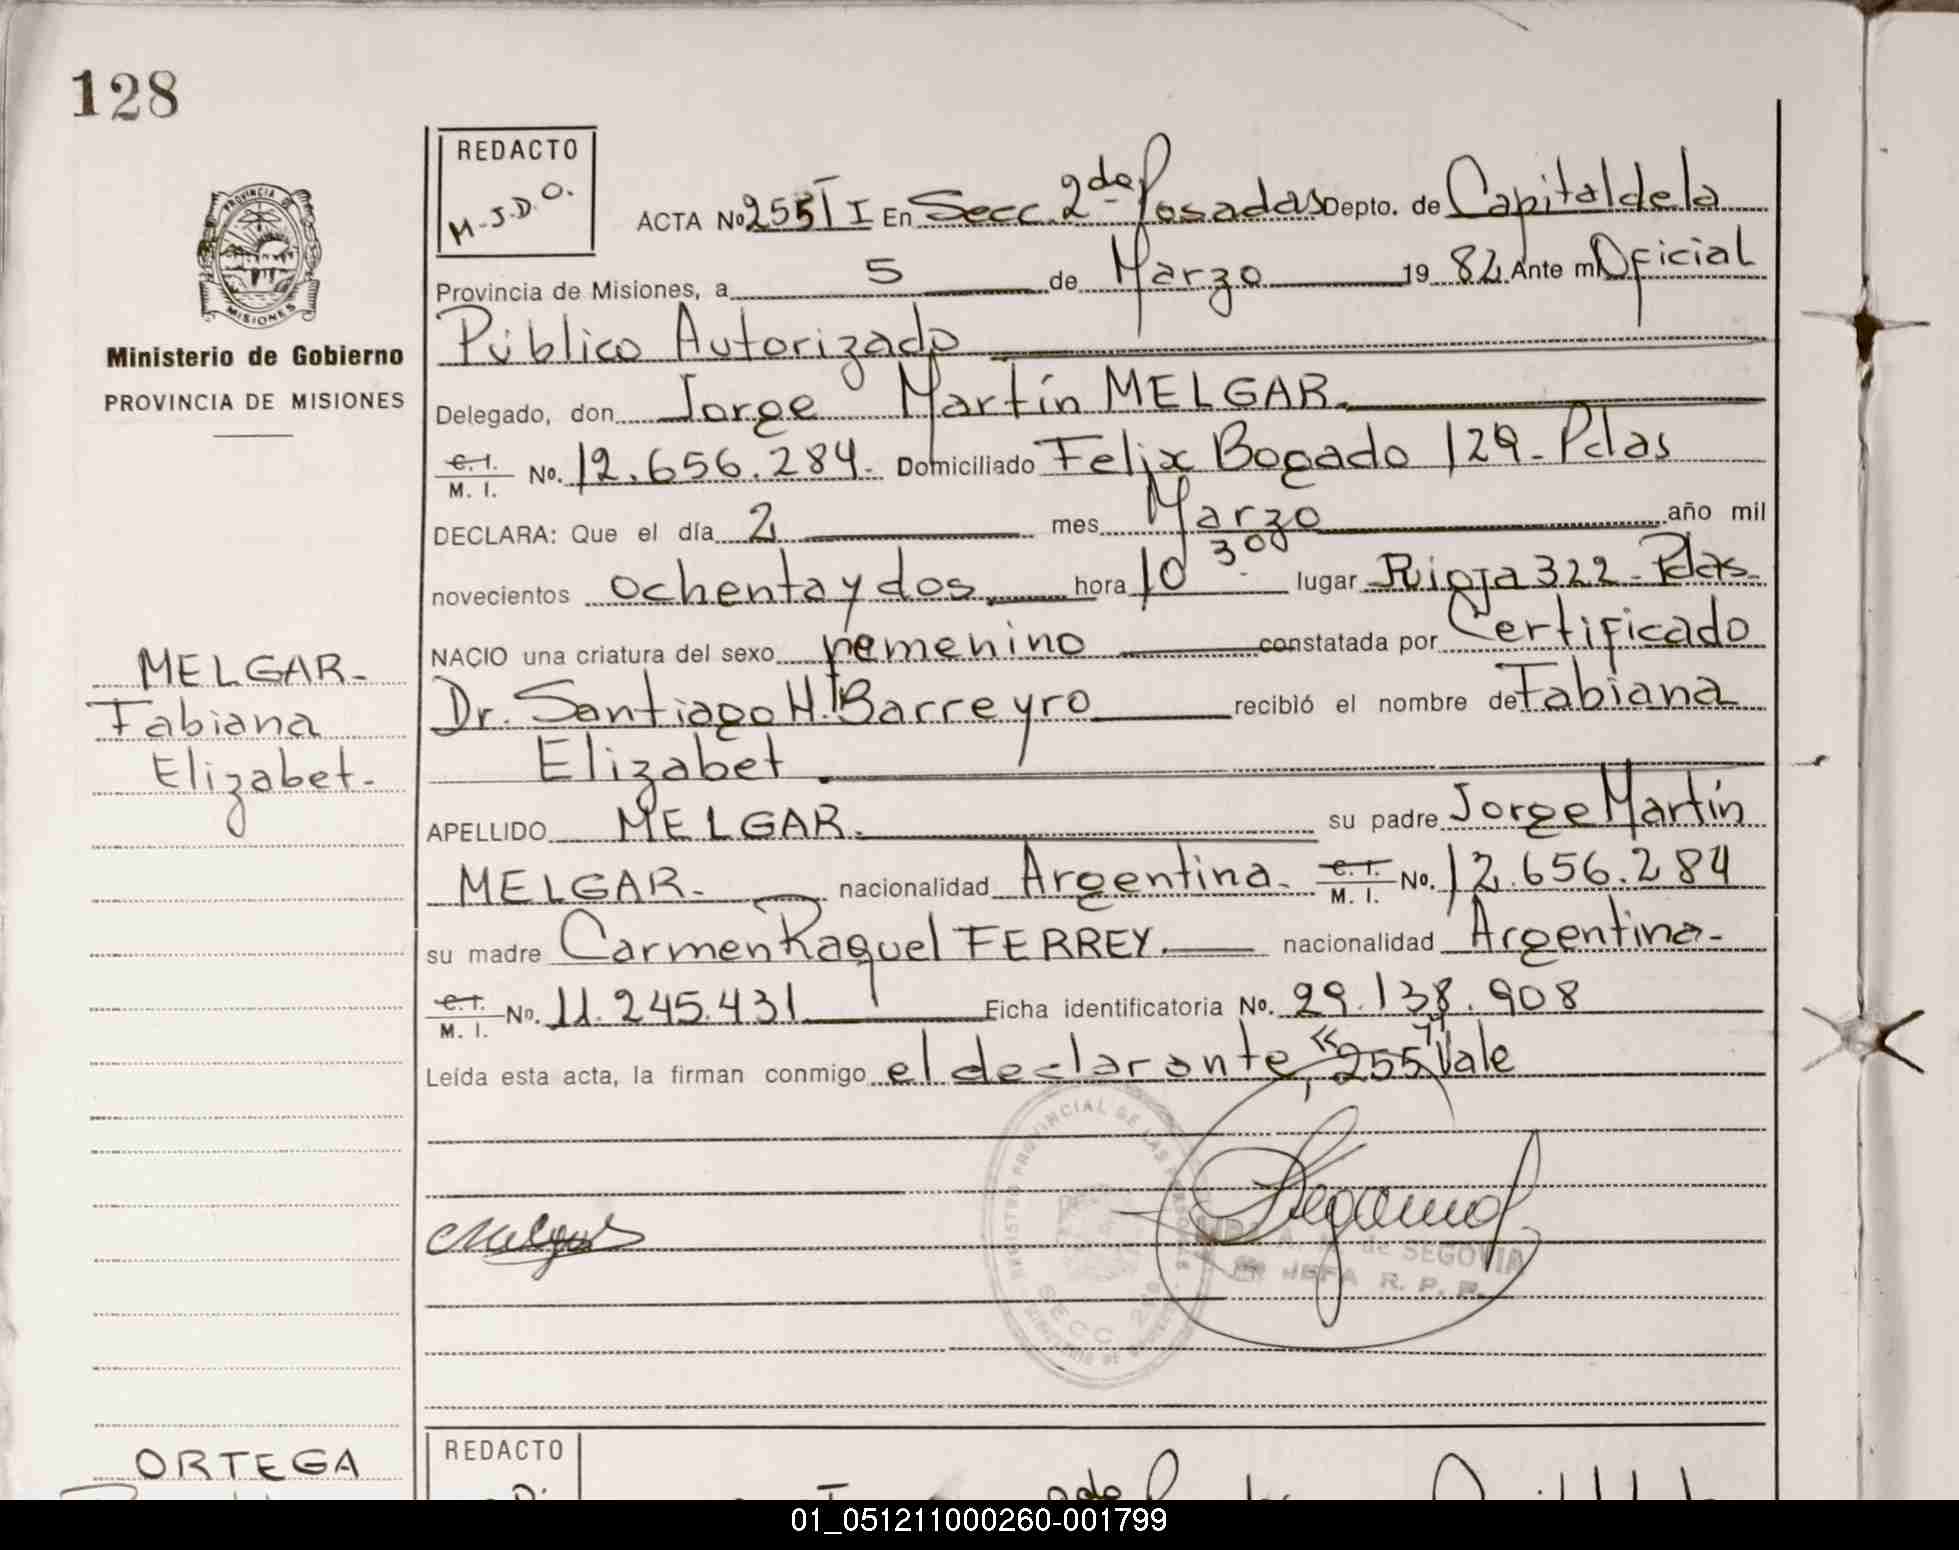 128
REDACTO
M-J.D.O.
PROVINCIA
MISIONES
Ministerio de Gobierno
PROVINCIA DE MISIONES
ACTA No 255 T I En Secc. 2da Posadas Depto. de Capital de la
Provincia de Misiones, a 5 de Marzo 19 82 Ante mi Oficial
Público Autorizado
Delegado, don Jorge Martín MELGAR.
C. I. / M. I. No. 12.656.284. Domiciliado Felix Bogado 129 - Pdas
DECLARA: Que el día 2 mes Marzo año mil
novecientos ochenta y dos hora 10 30 lugar Rioja 322 - Pdas -
NACIO una criatura del sexo femenino constatada por Certificado
Dr. Santiago H. Barreyro recibió el nombre de Fabiana
Elizabet
APELLIDO MELGAR. su padre Jorge Martín
MELGAR. nacionalidad Argentina. C. I. / M. I. No. 12.656.284
su madre Carmen Raquel FERREY. nacionalidad Argentina -
C. I. / M. I. No. 11.245.431 Ficha identificatoria No. 29.138.908
Leída esta acta, la firman conmigo el declarante, "255" Vale
MELGAR -
Fabiana
Elizabet -
REGISTRO PROVINCIAL DE LAS PERSONAS
SECC. 2da
de SEGOVIA
JEFA R. P. P.
ORTEGA
REDACTO
01_051211000260-001799